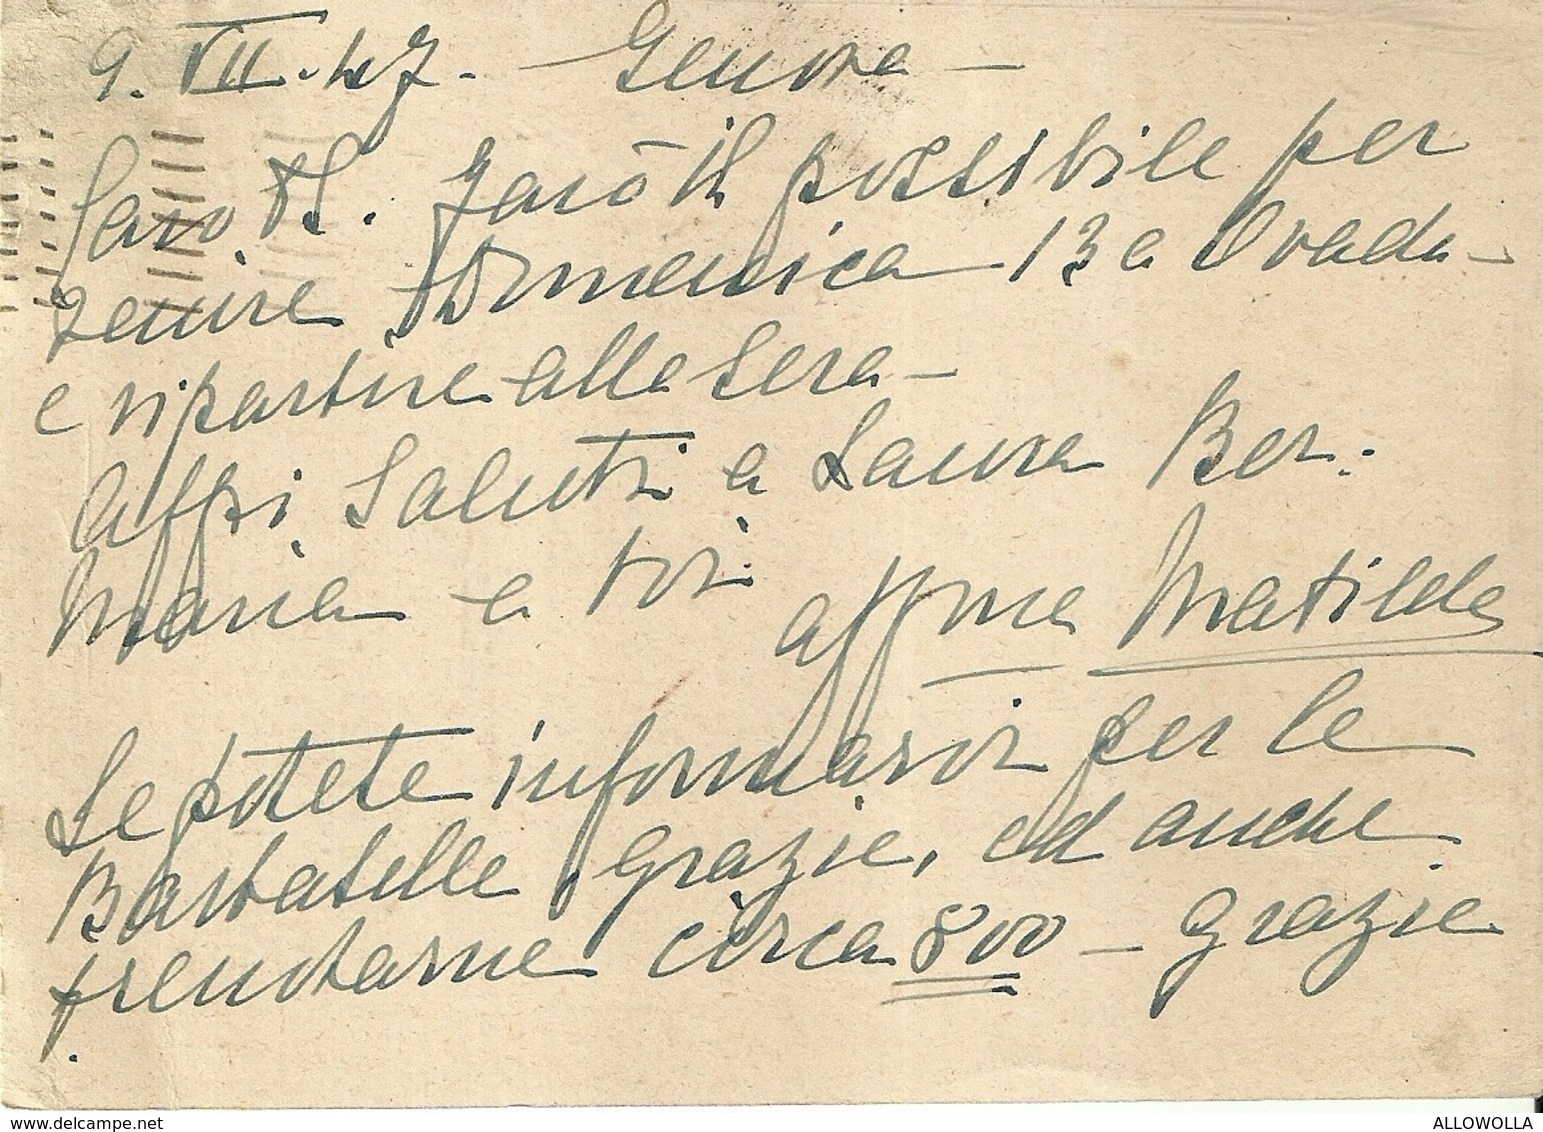 9. VII. 47. - Genova -
Caro. Farò il possibile per
venire Domenica 13 a Ovada -
e ripartire alla sera -
Affzi Saluti a Laura Ber.
Maria e voi
affma Matilda
Se potete informarvi per le
Barbatelle grazie, ed anche
prenotarne circa 800 - grazie
www.delcampe.net
ALLOWOLLA